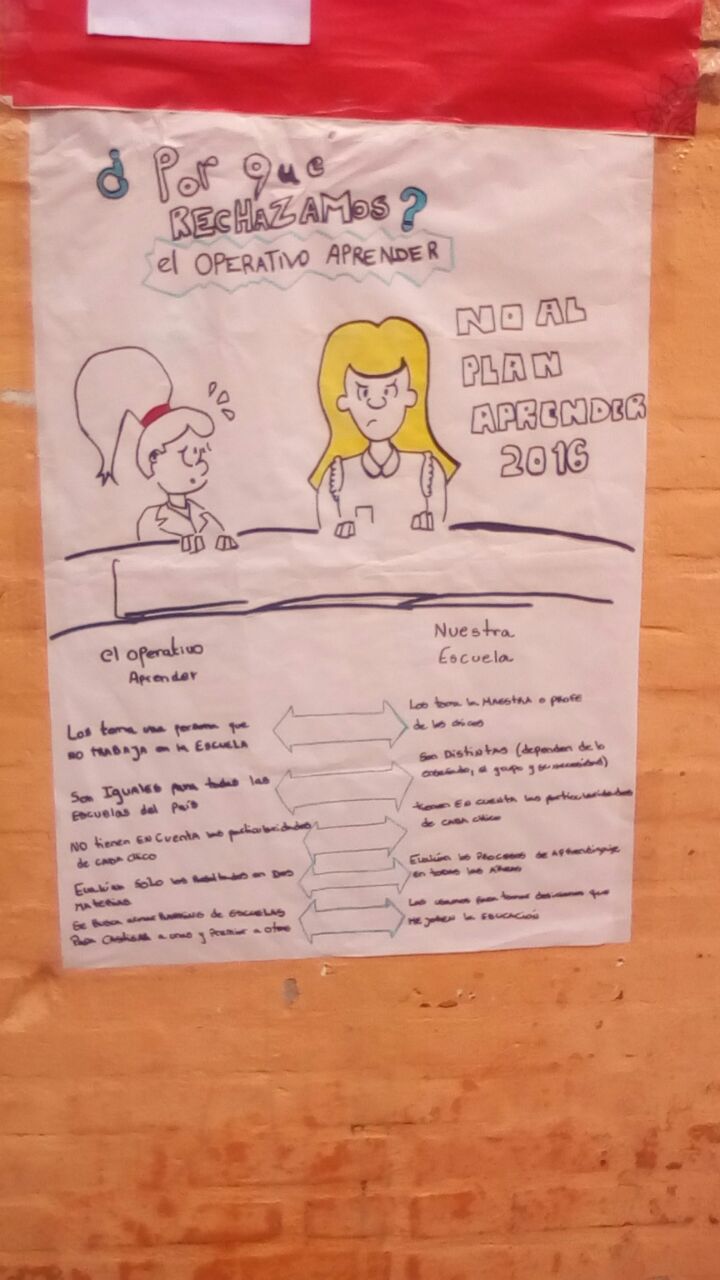 ¿ Por que
RECHAZAMOS?
el OPERATIVO APRENDER
NO AL
PLAN
APRENDER
2016
el operativo
Aprender
Nuestra
Escuela
Las toma una persona que
NO TRABAJA en la ESCUELA
Las toma la MAESTRA o PROFE
de los chicos
Son IGUALES para todas las
ESCUELAS del País
Son DISTINTAS (dependen de lo
enseñado, el grupo y su necesidad)
NO tienen EN CUENTA las particularidades
de CADA CHICO
tienen EN CUENTA las particularidades
de CADA CHICO
Evalúan SOLO los Resultados en DOS
MATERIAS
Evalúan los PROCESOS de APRENDIZAJE
en todas las ÁREAS
Se busca armar RANKING de ESCUELAS
PARA CASTIGAR a unos y Premiar a otros
Las usamos para tomar decisiones que
MEJOREN la EDUCACIÓN